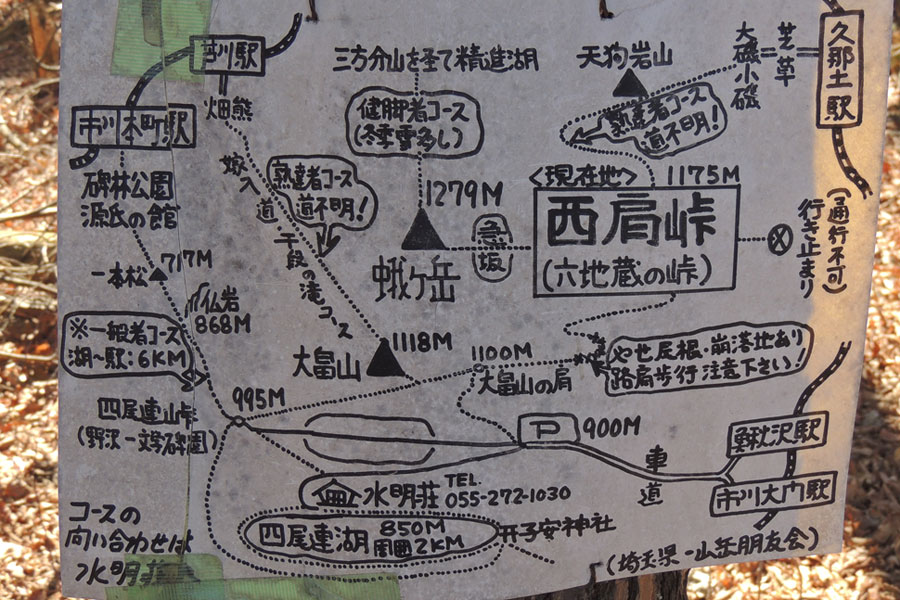 芦川駅
三方分山を経て精進湖
天狗岩山
大磯小磯
芝草
久那土駅
畑熊
市川本町駅
健脚者コース
(冬季雪多し)
熟達者コース
道不明!
嫁入道
熟達者コース
道不明!
干段の滝コース
碑林公園
源氏の館
1279M
<現在地>
1175M
西肩峠
(六地蔵の峠)
急坂
蛾ヶ岳
行き止まり
(通行不可)
一本松
717M
仏岩
868M
※一般者コース
湖~駅:6KM
大畠山
1118M
1100M
大畠山の肩
やせ尾根・崩落地あり
路肩歩行注意下さい!
四尾連峠
(野沢一文学碑園)
995M
P
900M
車道
鰍沢駅
市川大門駅
水明荘
TEL.
055-272-1030
四尾連湖
850M
周囲2KM
子安神社
コースの
問い合わせは
水明荘
(埼玉県-山岳朋友会)